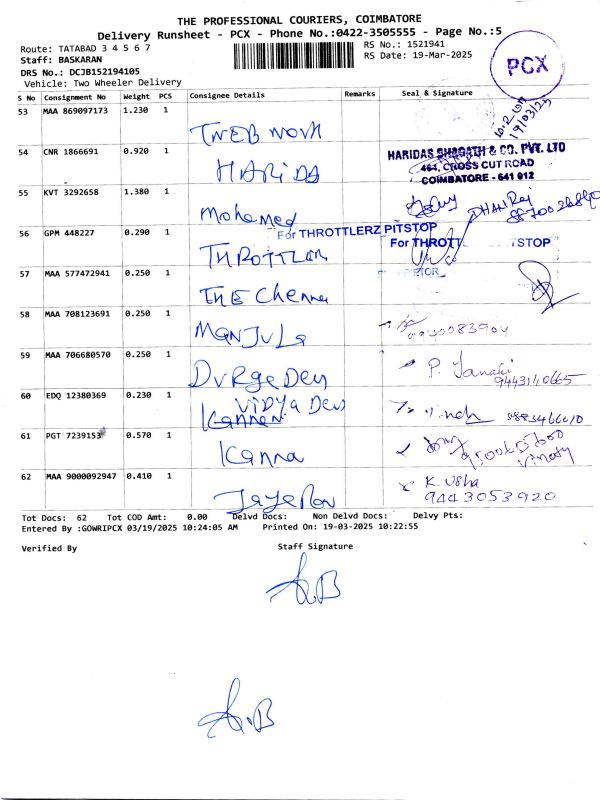 THE PROFESSIONAL COURIERS, COIMBATORE
Delivery Runsheet - PCX - Phone No.:0422-3505555 - Page No.:5
Route: TATABAD 3 4 5 6 7
RS No.: 1521941
Staff: BASKARAN
RS Date: 19-Mar-2025
DRS No.: DCJB152194105
Vehicle: Two Wheeler Delivery
PCX
S No Consignment No Weight PCS Consignee Details Remarks Seal & Signature
53 MAA 869097173 1.230 1
19/03/25
54 CNR 1866691 0.920 1 HARIDAS
HARIDAS BHAGATH & CO. PVT. LTD
464, CROSS CUT ROAD
COIMBATORE - 641 012
55 KVT 3292658 1.380 1 Mohamed
DHANRaj
56 GPM 448227 0.290 1 THROTTLAR
For THROTTLERZ PITSTOP
For THROTTL TSTOP
57 MAA 577472941 0.250 1 THE Chenna
58 MAA 708123691 0.250 1 MANJULA
59 MAA 706680570 0.250 1 DURGE DEVI
P. Janaki
60 EDQ 12380369 0.230 1 VIDYA DEVI
61 PGT 7239153 0.570 1 Kanna
62 MAA 9000092947 0.410 1
K. Usha
9443053920
Tot Docs: 62 Tot COD Amt: 0.00 Delvd Docs: Non Delvd Docs: Delvy Pts:
Entered By :GOWRIPCX 03/19/2025 10:24:05 AM Printed On: 19-03-2025 10:22:55
Verified By Staff Signature